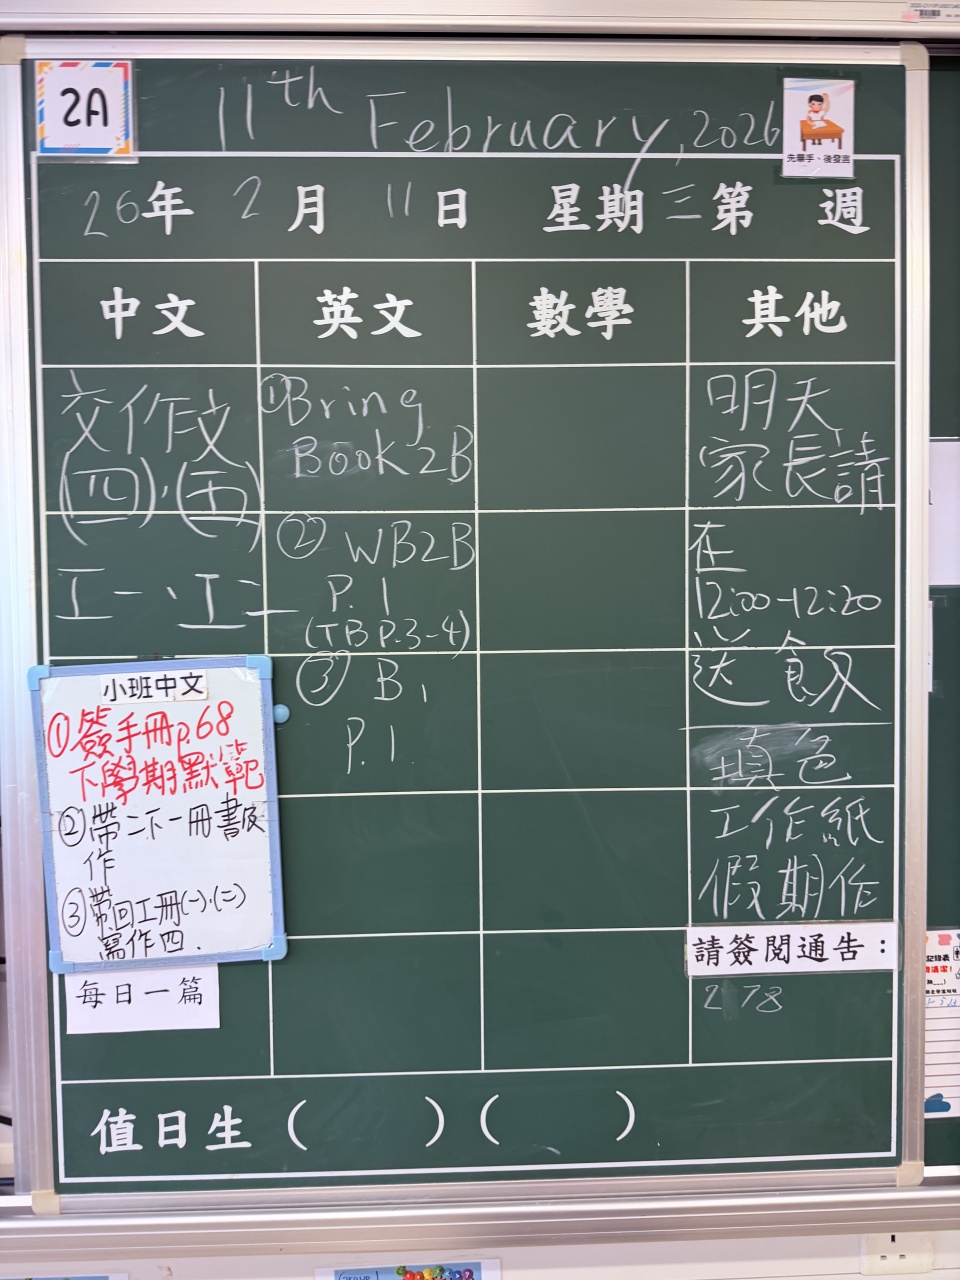 2A
11th February, 2026
先舉手、後發言
26年 2月 11日 星期三 第 週
中文 英文 數學 其他
交作文
(四)、(五)
工一、工二
小班中文
①簽手冊p.68
下學期默範
②帶二下一冊書及
作
③帶回工冊(一)、(二)
寫作四.
每日一篇
①Bring
Book 2B
② WB2B
P.1
(TB P.3-4)
③ B1
P.1
明天
家長請
在
12:00-12:20
送飯
填色
工作紙
假期作
請簽閱通告：
278
值日生 ( ) ( )